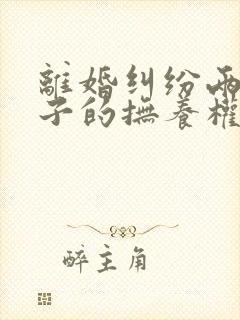 離婚糾紛兩
子的撫養權
醉主角